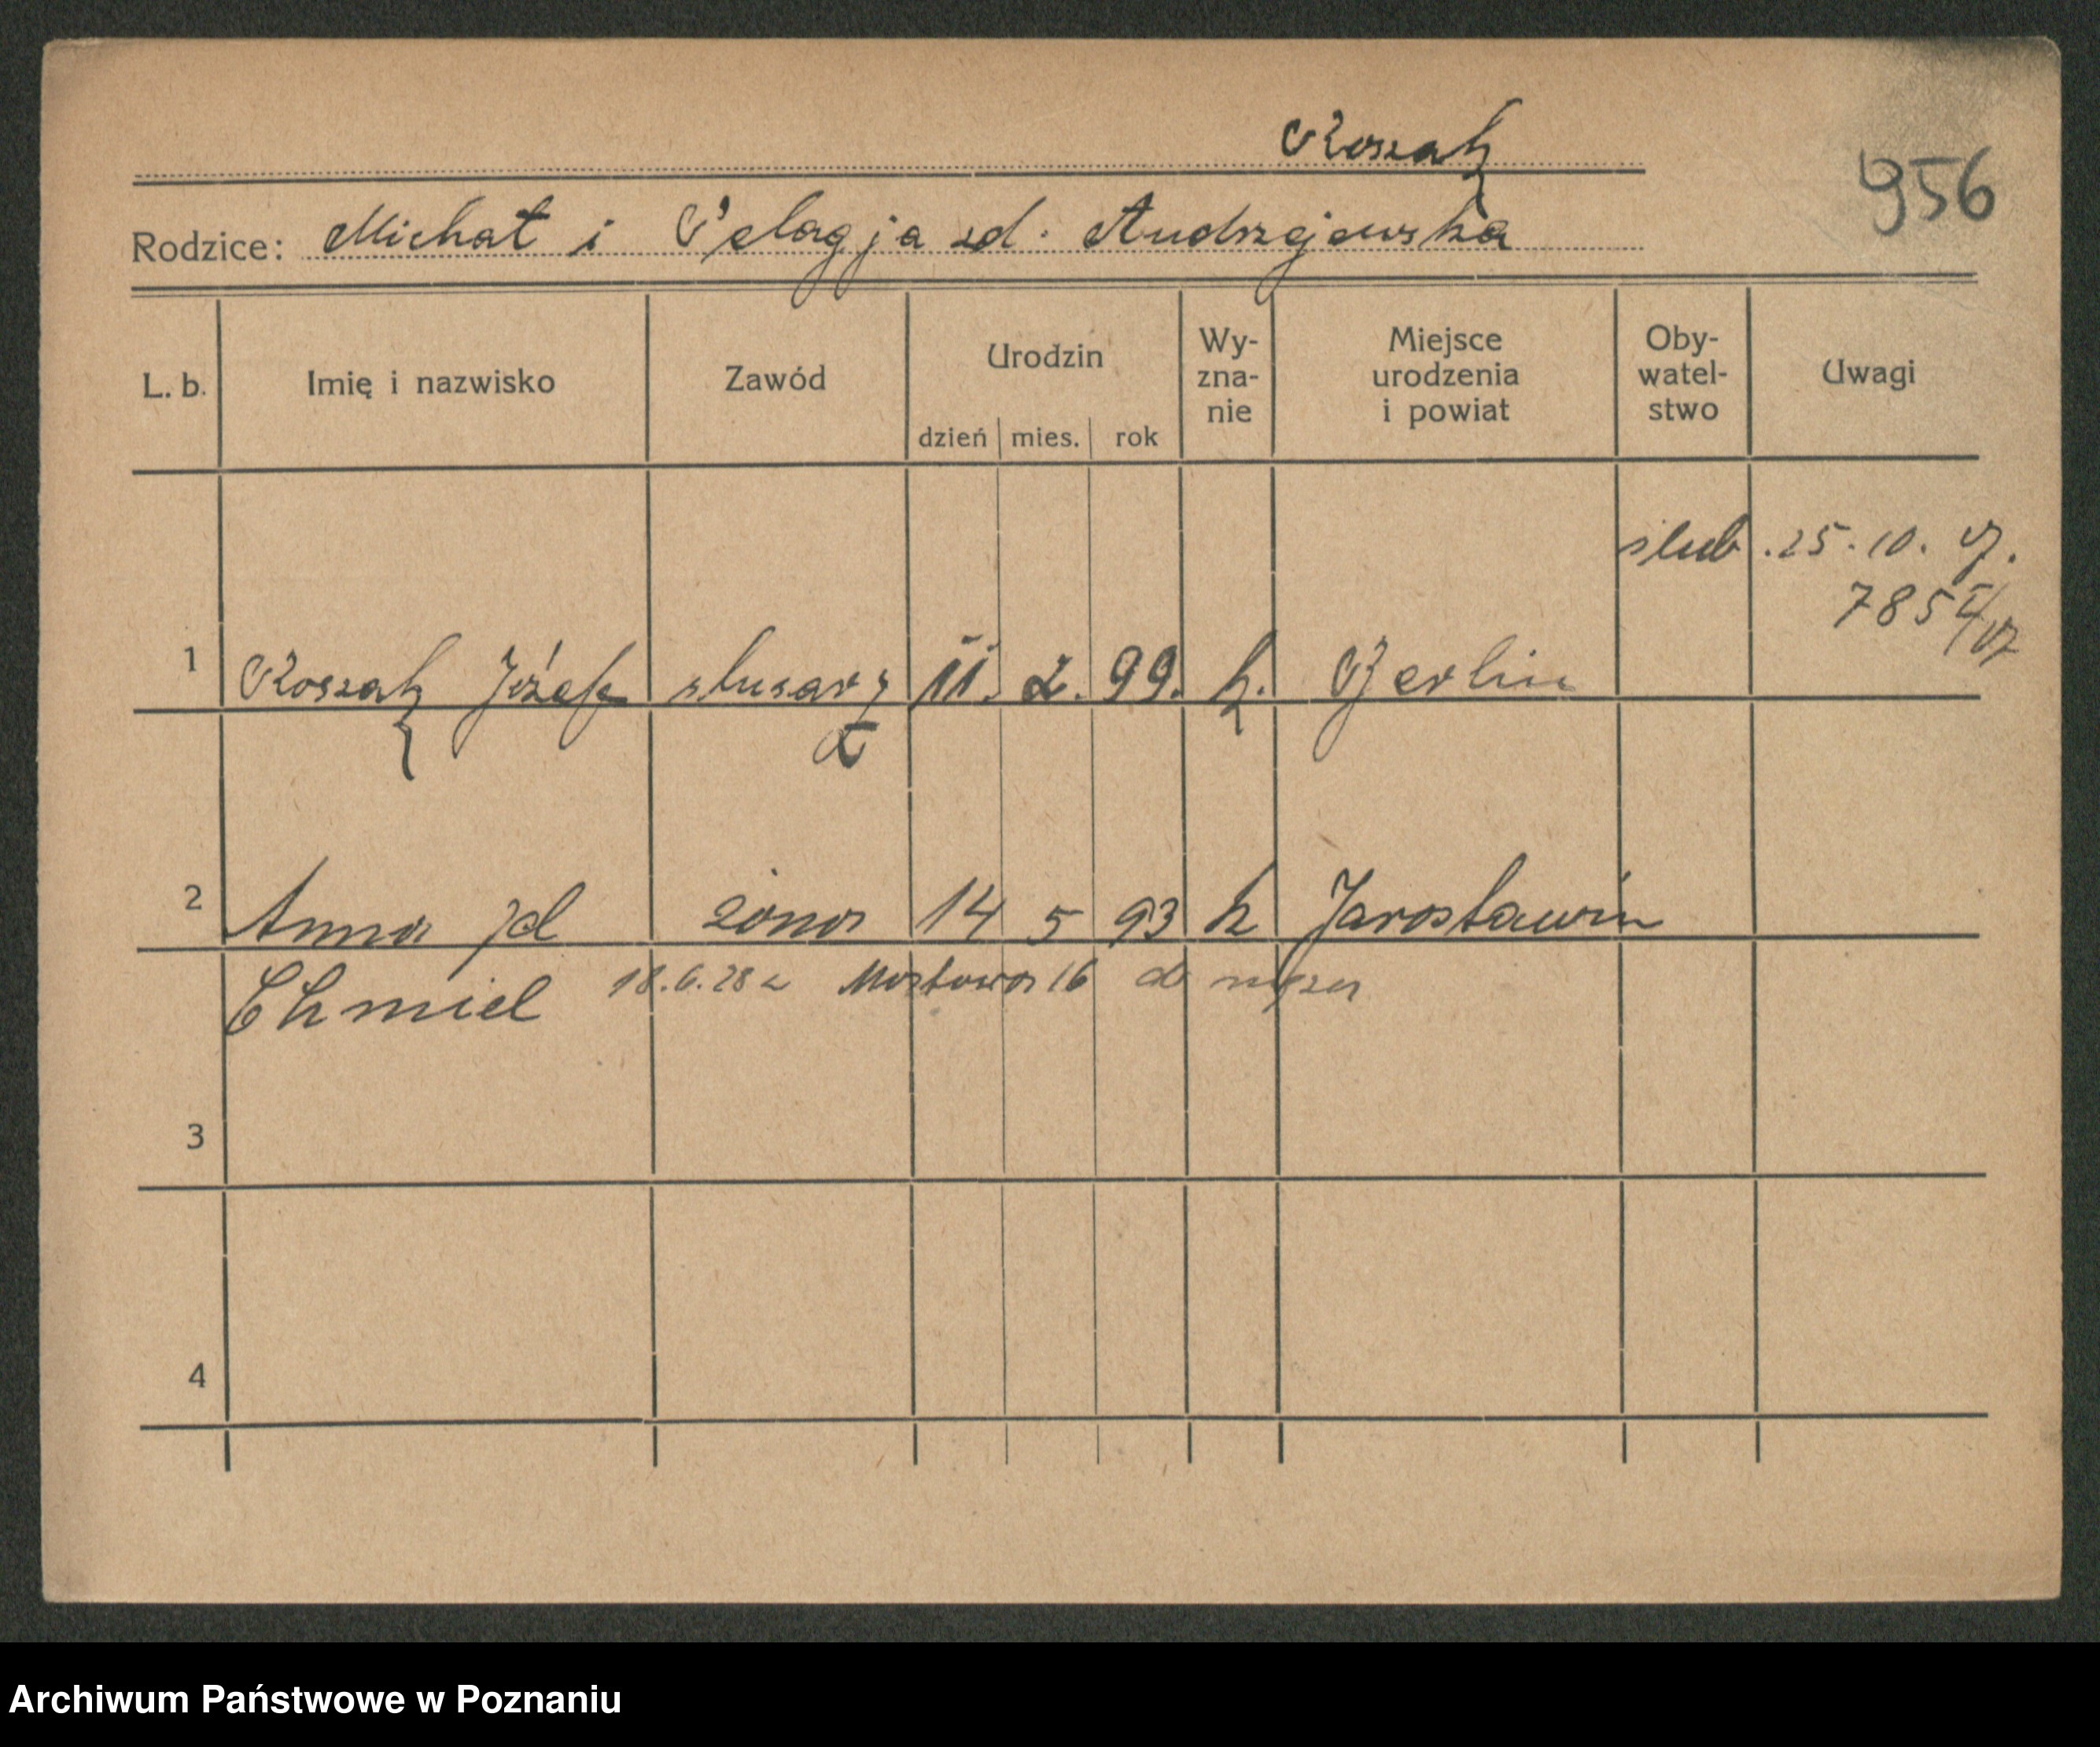 Koszak
956
Rodzice: Michał i Pelagja zd. Andrzejewska
L. b. Imię i nazwisko Zawód Urodzin dzień mies. rok Wy-zna-nie Miejsce urodzenia i powiat Oby-watel-stwo Uwagi
ślub 25.10. 27.
785
1 Koszak Józef ślusarz 11. 2. 99. k. Berlin
2 Anna zd żona 14 5 93 k Jarosławin
Chmiel 18.6.28 z Mostowa 16 do męża
3
4
Archiwum Państwowe w Poznaniu